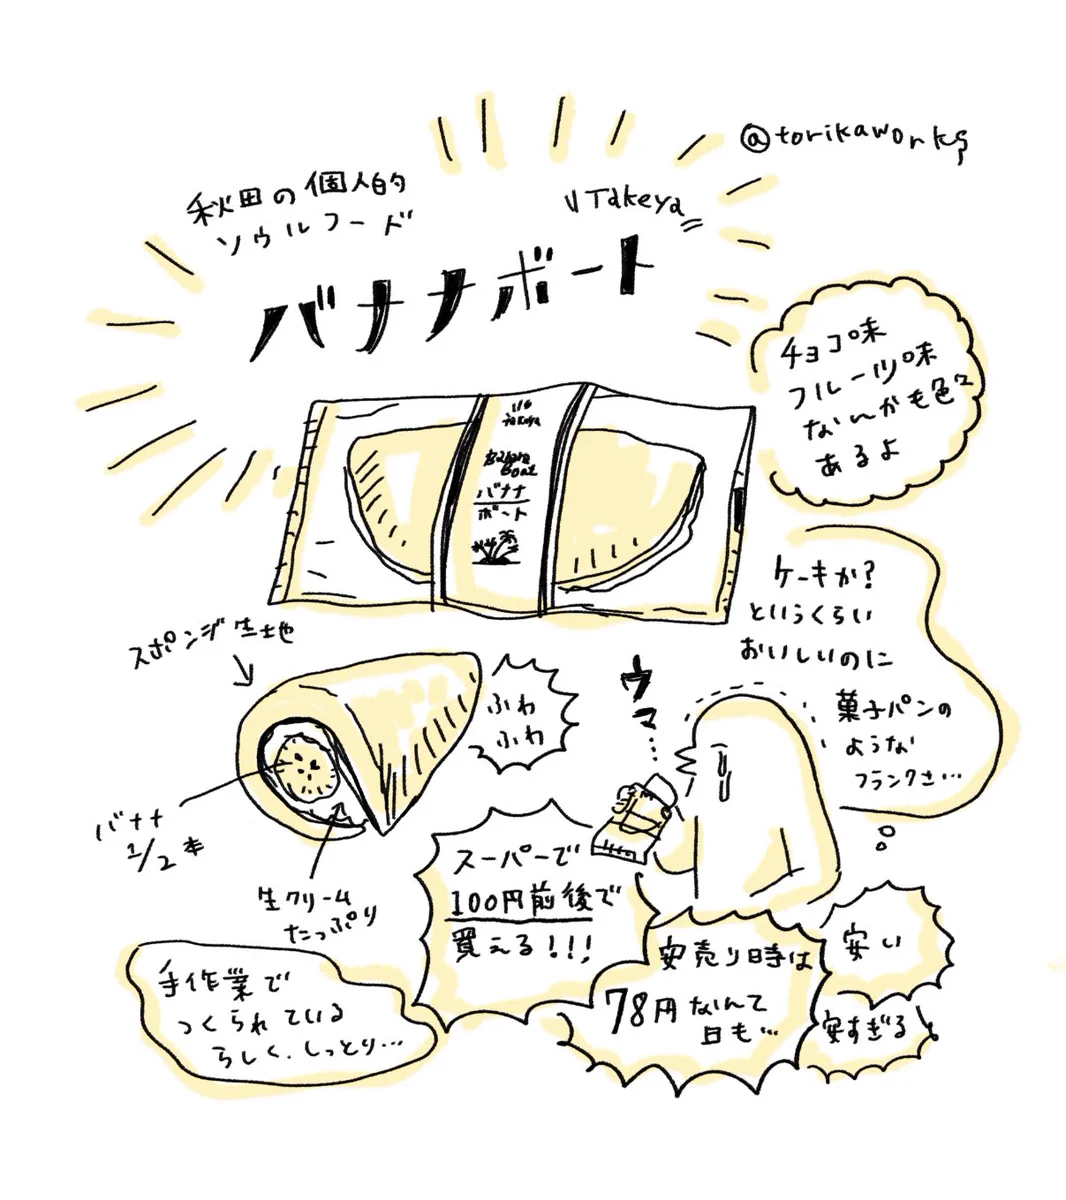 @torikaworks
秋田の個人的
ソウルフード
Takeya
バナナボート
チョコ味
フルーツ味
なんかも色々
あるよ
takeya
Banana
Boat
バナナ
ボート
ケーキか?
というくらい
おいしいのに
菓子パンの
ような
フランクさ…
スポンジ生地
ふわ
ふわ
ウマ…
バナナ
1/2本
生クリーム
たっぷり
スーパーで
100円前後で
買える!!!
安売り時は
78円なんて
日も…
安い
安すぎる
手作業で
つくられている
らしく、しっとり…